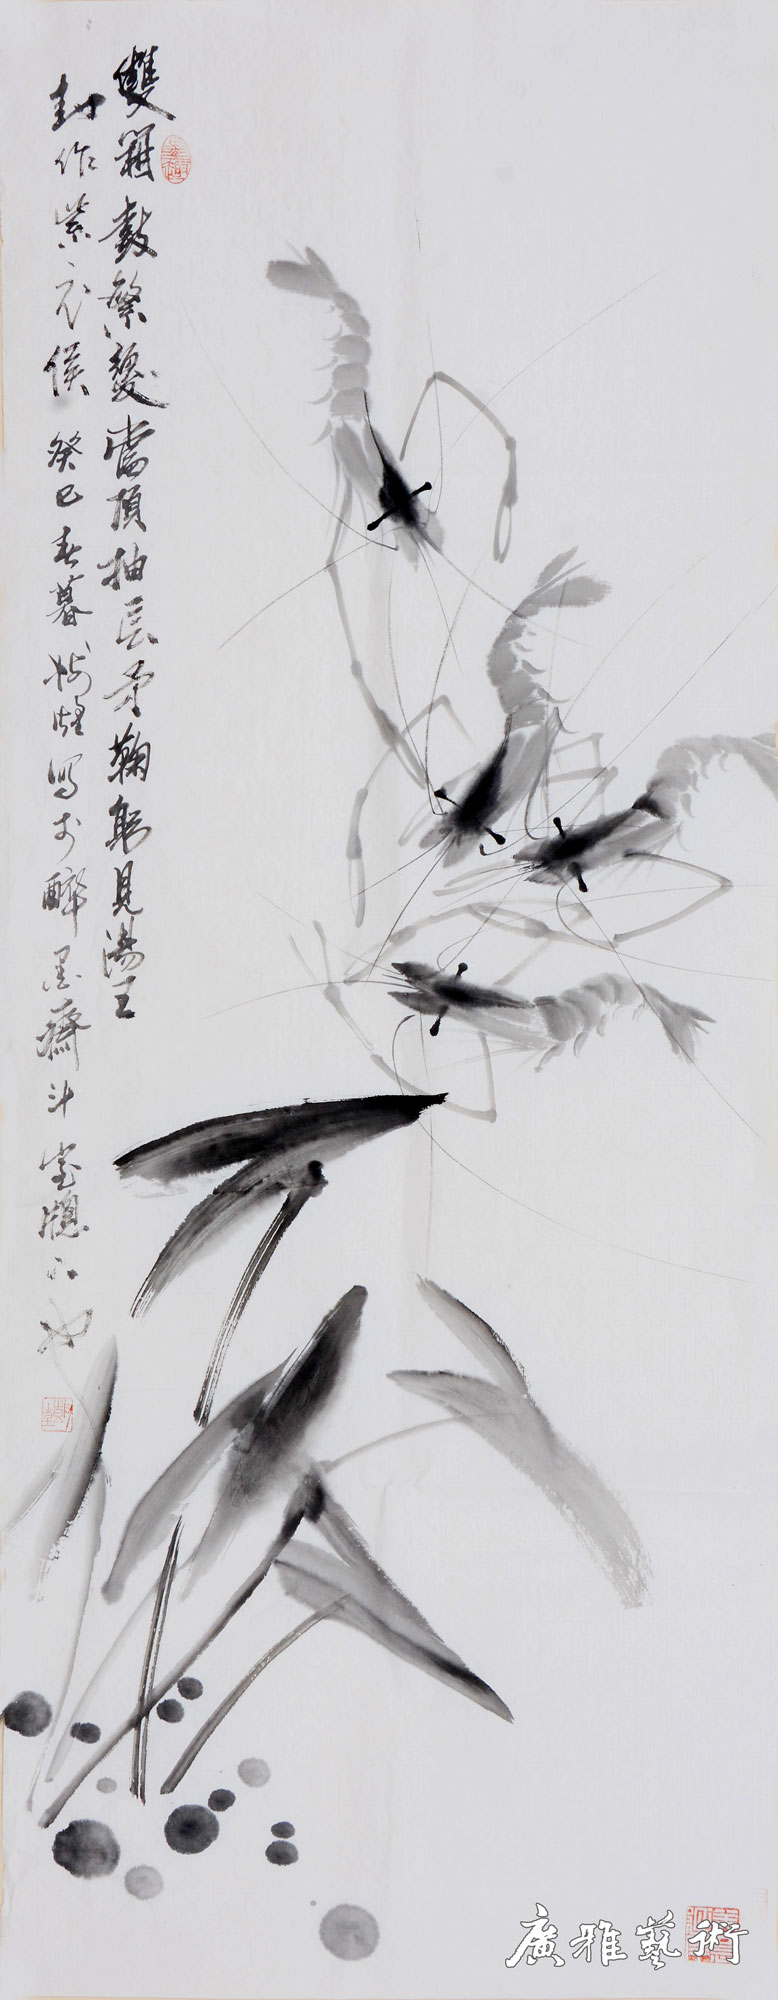 雙箝鼓繁鬚當頂抽長矛鞠躬見湯王
封作紫衣侯 癸巳春暮寫於醉墨齋斗室牕下
廣雅藝術